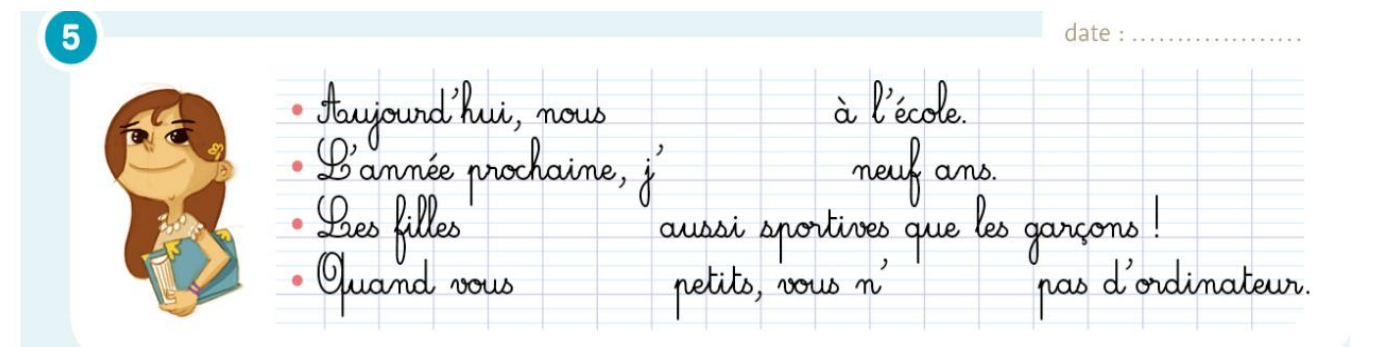 5
date : ...................
• Aujourd'hui, nous à l'école.
• L'année prochaine, j' neuf ans.
• Les filles aussi sportives que les garçons !
• Quand vous petits, vous n' pas d'ordinateur.